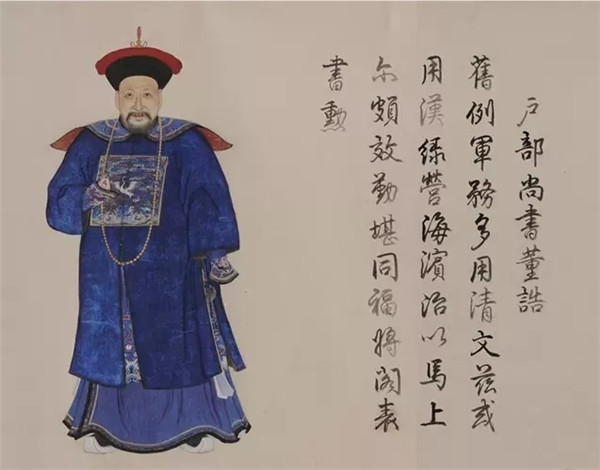 户部尚書董誥
舊例軍務多用清文茲或
用漢緑營海濱治以馬上
尓頗效勤堪同福將閣表
書勳